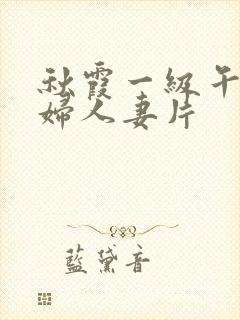 秋霞一級午
婦人妻片
藍黛音